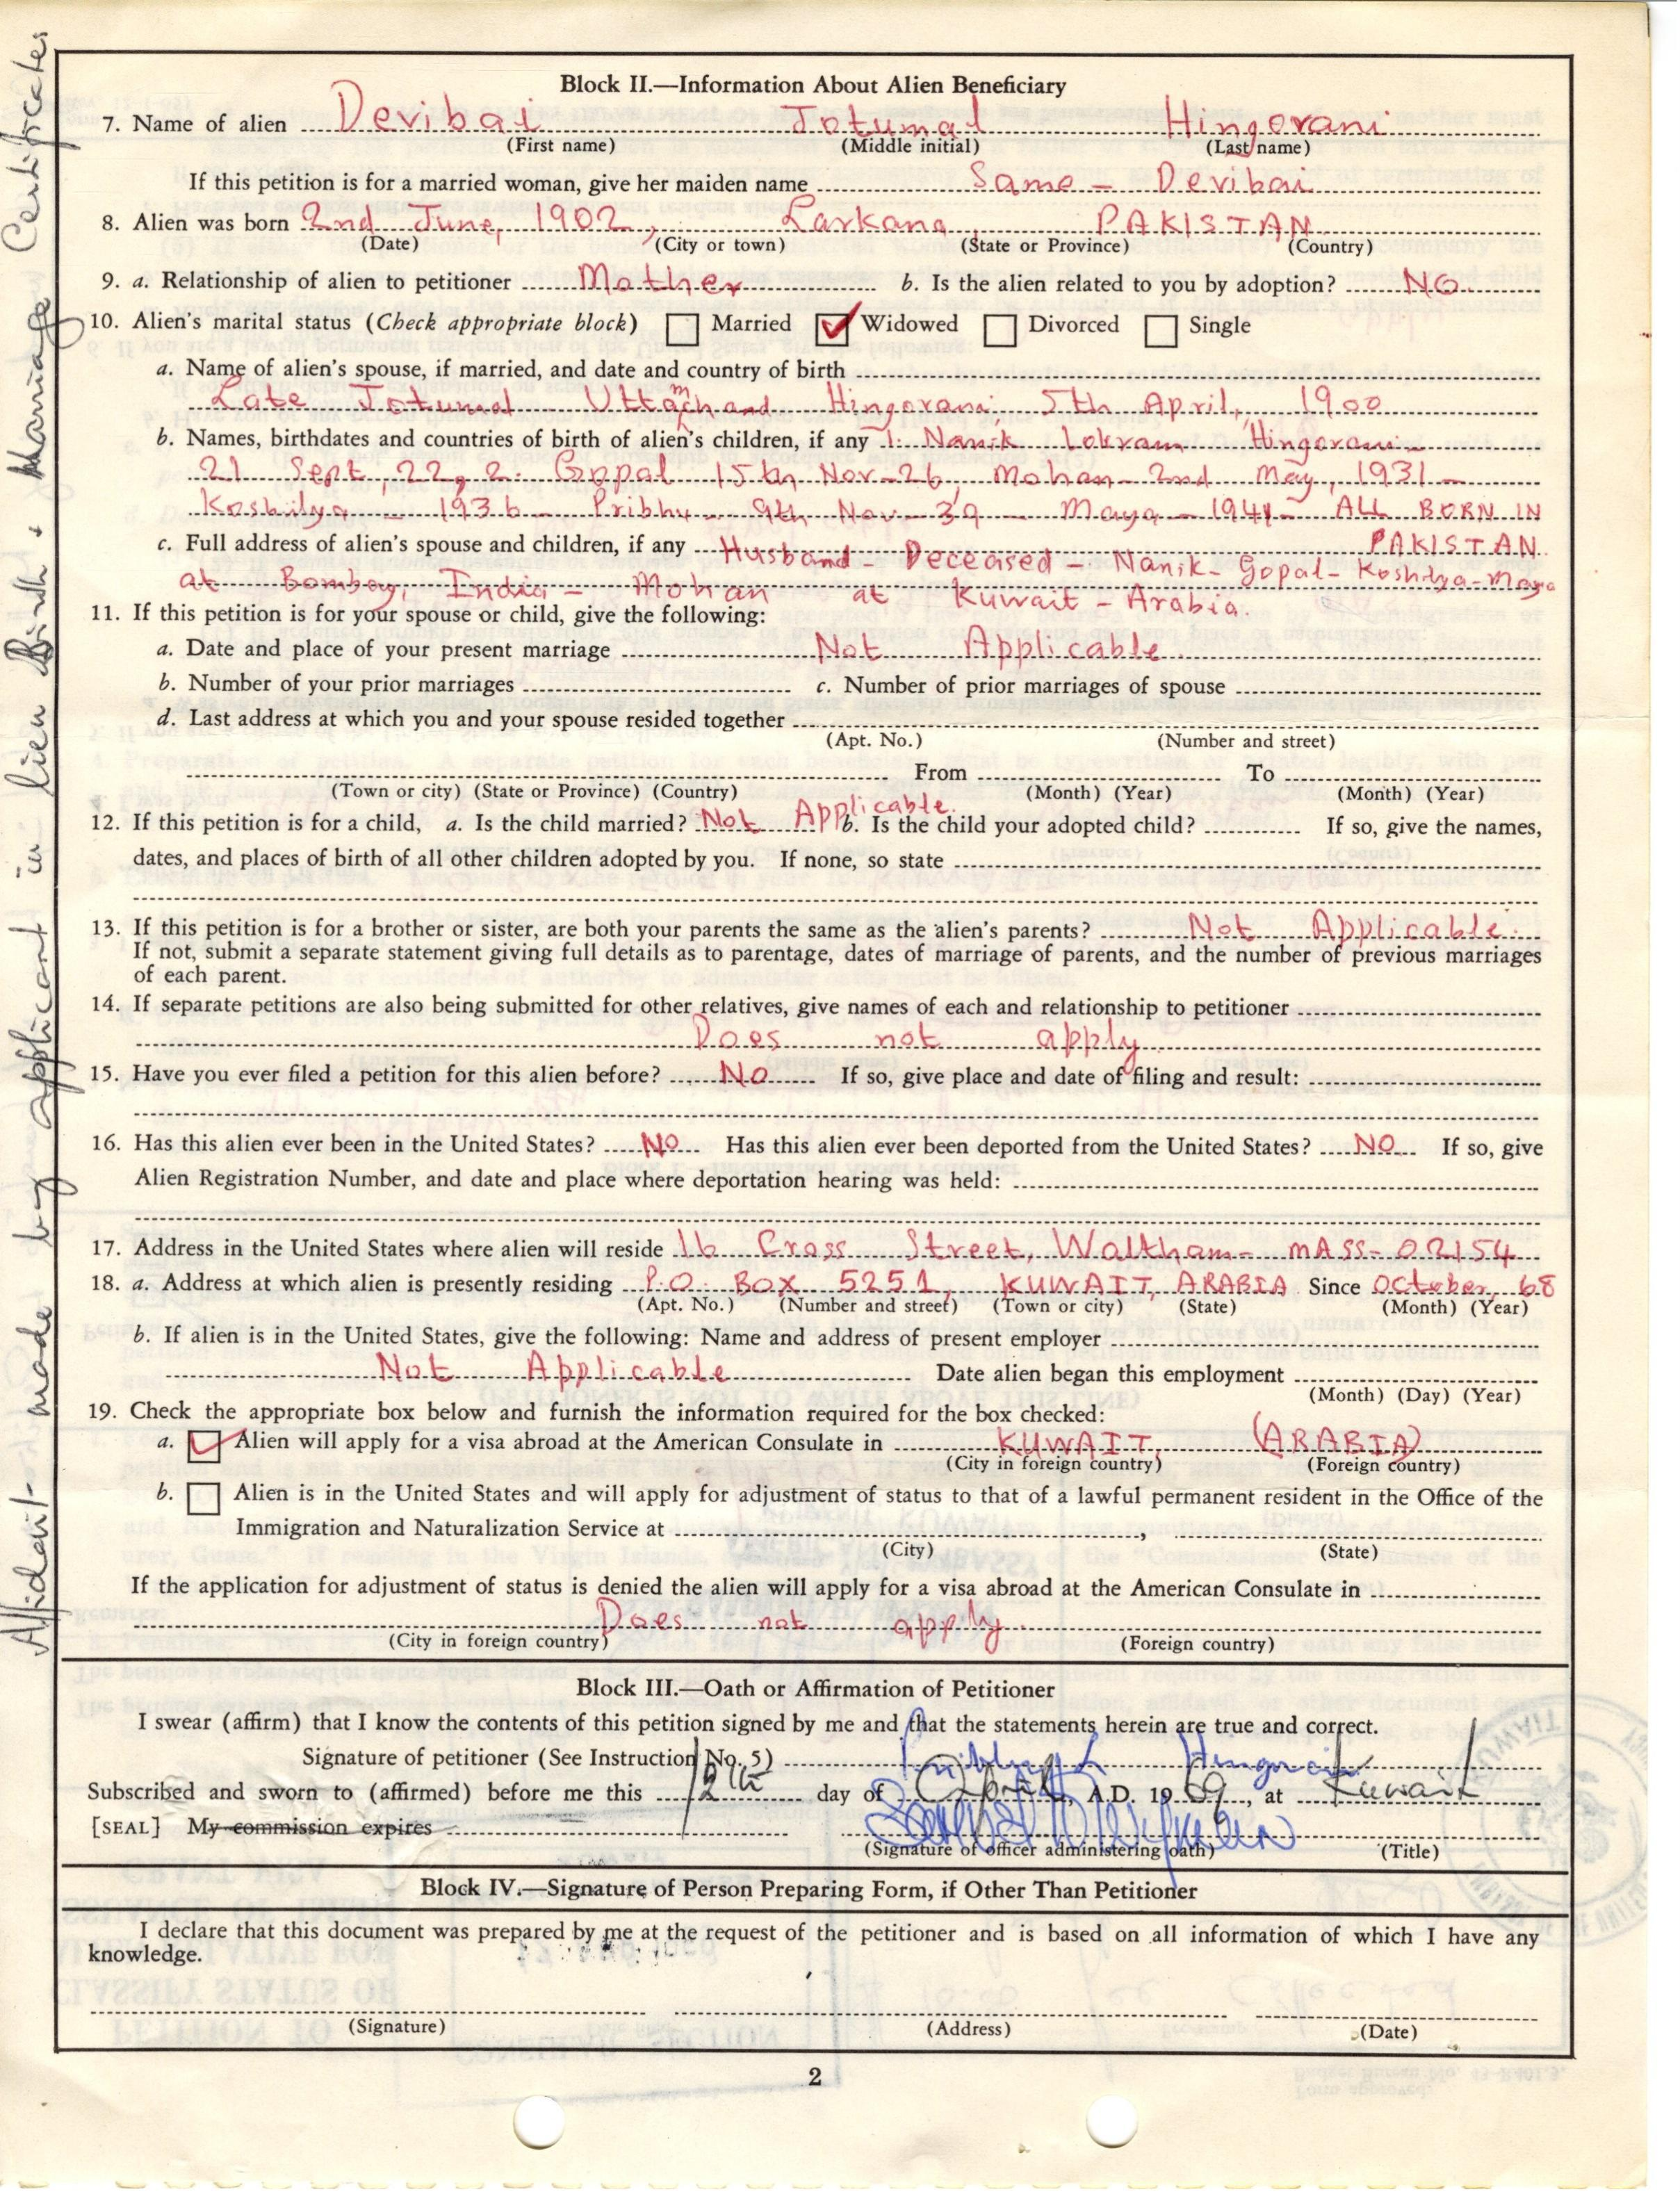 Block II.—Information About Alien Beneficiary
7. Name of alien Devibai Jotumal Hingorani
(First name) (Middle initial) (Last name)
If this petition is for a married woman, give her maiden name Same - Devibai
8. Alien was born 2nd June, 1902, Larkana, PAKISTAN
(Date) (City or town) (State or Province) (Country)
9. a. Relationship of alien to petitioner Mother b. Is the alien related to you by adoption? NO.
10. Alien's marital status (Check appropriate block) Married Widowed Divorced Single
a. Name of alien's spouse, if married, and date and country of birth
Late Jotumal Uttamchand Hingorani, 5th April, 1900
b. Names, birthdates and countries of birth of alien's children, if any 1. Nanik Lokram Hingorani -
21 Sept, 22, 2. Gopal 15th Nov-26, Mohan - 2nd May, 1931 -
Koshilya - 1936 - Pribhu - 9th Nov - 39 - Maya - 1941 - ALL BORN IN
PAKISTAN.
c. Full address of alien's spouse and children, if any Husband - Deceased - Nanik - Gopal - Koshilya - Maya
at Bombay, India - Mohan at Kuwait - Arabia.
11. If this petition is for your spouse or child, give the following:
a. Date and place of your present marriage Not Applicable
b. Number of your prior marriages c. Number of prior marriages of spouse
d. Last address at which you and your spouse resided together
(Apt. No.) (Number and street)
From To
(Town or city) (State or Province) (Country) (Month) (Year) (Month) (Year)
12. If this petition is for a child, a. Is the child married? Not Applicable. b. Is the child your adopted child? If so, give the names,
dates, and places of birth of all other children adopted by you. If none, so state
13. If this petition is for a brother or sister, are both your parents the same as the alien's parents? Not Applicable.
If not, submit a separate statement giving full details as to parentage, dates of marriage of parents, and the number of previous marriages
of each parent.
14. If separate petitions are also being submitted for other relatives, give names of each and relationship to petitioner
Does not apply
15. Have you ever filed a petition for this alien before? NO If so, give place and date of filing and result:
16. Has this alien ever been in the United States? NO Has this alien ever been deported from the United States? NO If so, give
Alien Registration Number, and date and place where deportation hearing was held:
17. Address in the United States where alien will reside 16 Cross Street, Waltham - MASS - 02154
18. a. Address at which alien is presently residing P.O. BOX 5251, KUWAIT, ARABIA Since October, 68
(Apt. No.) (Number and street) (Town or city) (State) (Month) (Year)
b. If alien is in the United States, give the following: Name and address of present employer
Not Applicable Date alien began this employment
(Month) (Day) (Year)
19. Check the appropriate box below and furnish the information required for the box checked:
a. Alien will apply for a visa abroad at the American Consulate in KUWAIT, (ARABIA)
(City in foreign country) (Foreign country)
b. Alien is in the United States and will apply for adjustment of status to that of a lawful permanent resident in the Office of the
Immigration and Naturalization Service at ,
(City) (State)
If the application for adjustment of status is denied the alien will apply for a visa abroad at the American Consulate in
Does not apply.
(City in foreign country) (Foreign country)
Block III.—Oath or Affirmation of Petitioner
I swear (affirm) that I know the contents of this petition signed by me and that the statements herein are true and correct.
Signature of petitioner (See Instruction No. 5) Hingorani
Subscribed and sworn to (affirmed) before me this 12th day of April, A.D. 1969, at Kuwait
[SEAL] My commission expires
(Signature of officer administering oath) (Title)
Block IV.—Signature of Person Preparing Form, if Other Than Petitioner
I declare that this document was prepared by me at the request of the petitioner and is based on all information of which I have any
knowledge.
(Signature) (Address) (Date)
2
Affidavit made by applicant in lieu Birth & Marriage Certificates